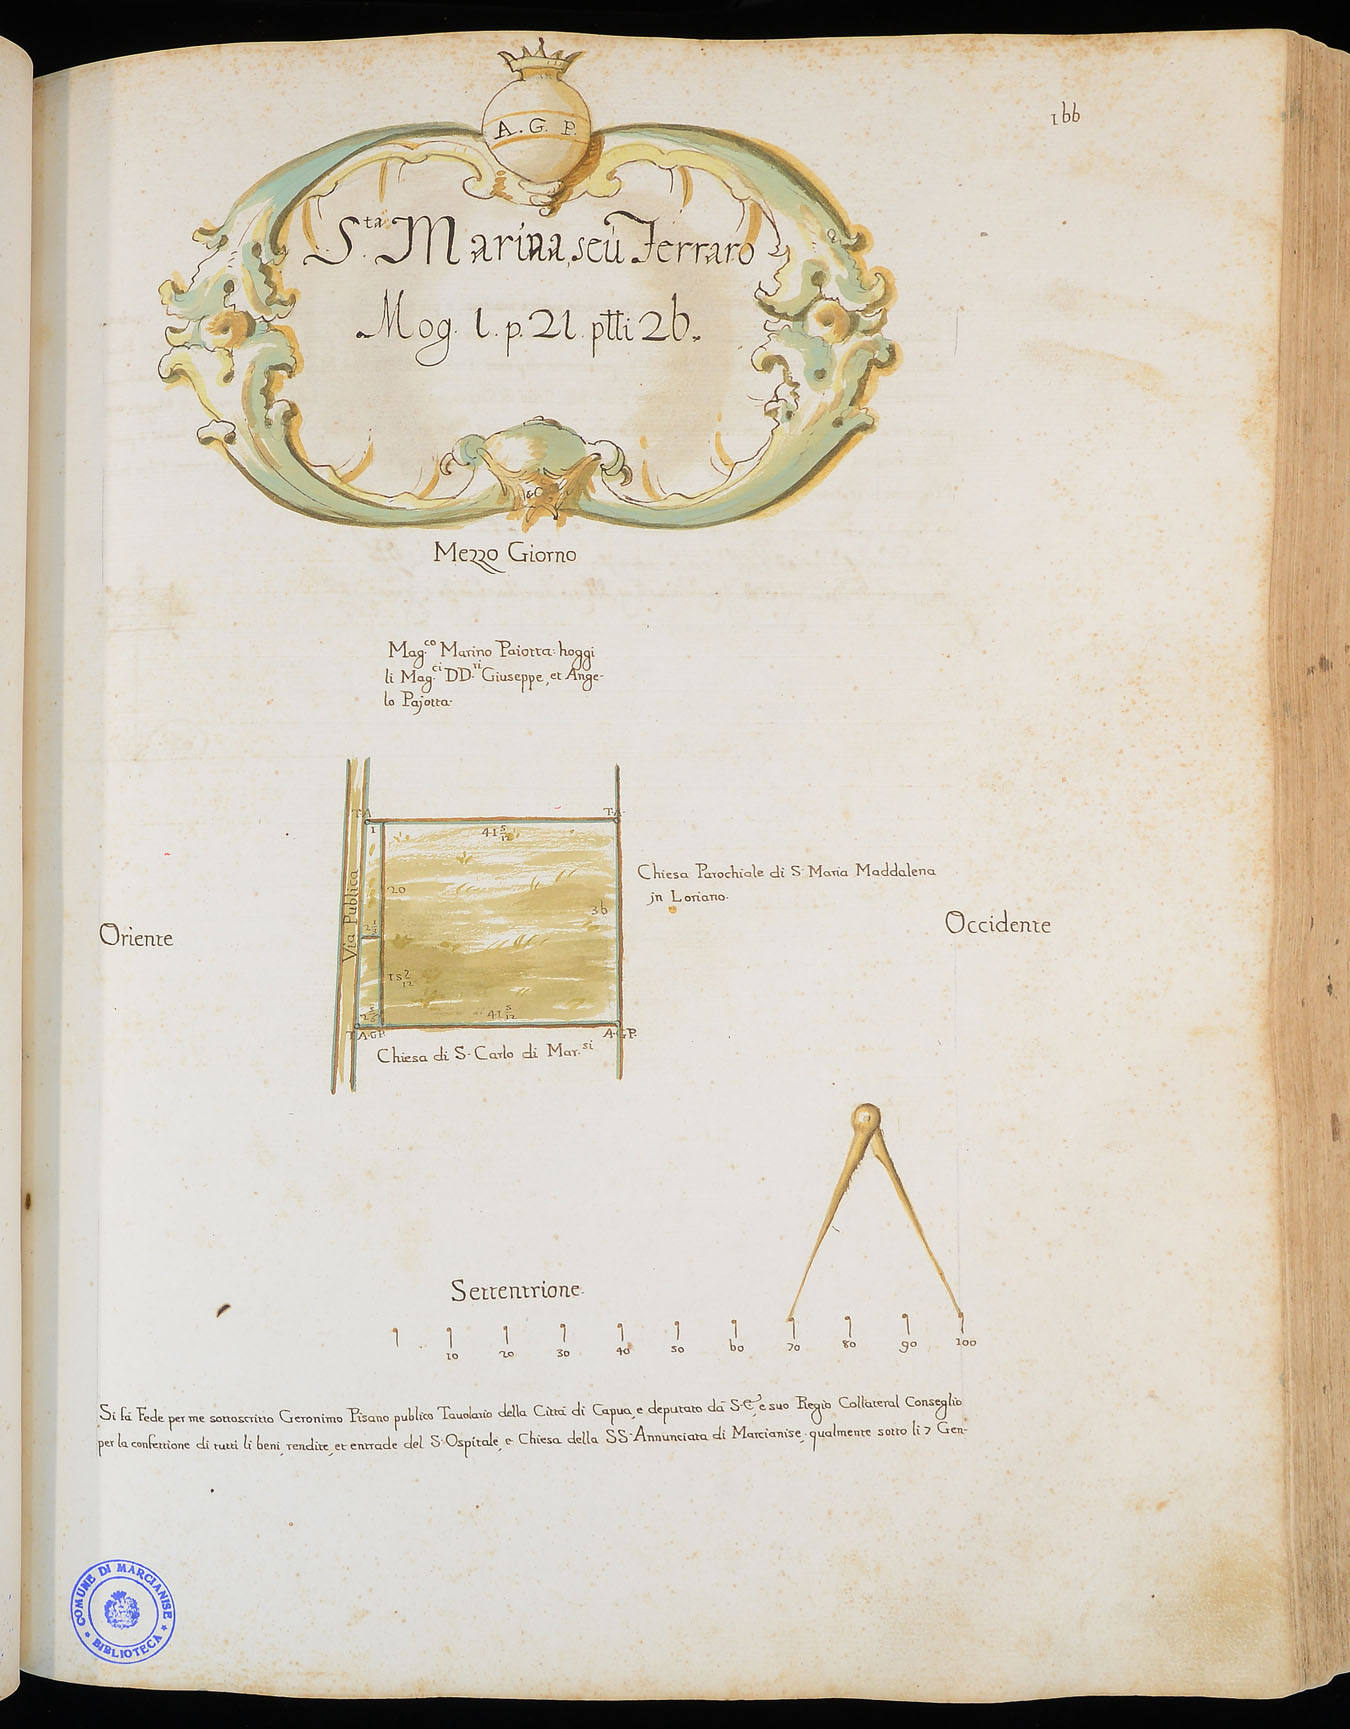 166
A. G. P.
S.ta Marina, seu Ferraro
Mog. 1. p. 21. ptti 26.
Mezzo Giorno
Mag.co Marino Paiotta: hoggi
li Mag.ci DD.ri Giuseppe, et Ange-
lo Pajotta.
T.A.
T.A.
1
41 5/12
20
Via Publica
36
15 2/12
41 5/12
T.A.G.P.
A.G.P.
Chiesa Parochiale di S. Maria Maddalena
in Loriano.
Oriente
Occidente
Chiesa di S. Carlo di Mar.si
Settentrione.
10 20 30 40 50 60 70 80 90 100
Si fà Fede per me sottoscritto Geronimo Pisano publico Tauolario della Città di Capua, e deputato dà S. E. e suo Regio Collateral Conseglio
per la confettione di tutti li beni, rendite, et entrade del S. Ospitale, e Chiesa della SS. Annunciata di Marcianise, qualmente sotto li 7 Gen-
COMUNE DI MARCIANISE
BIBLIOTECA